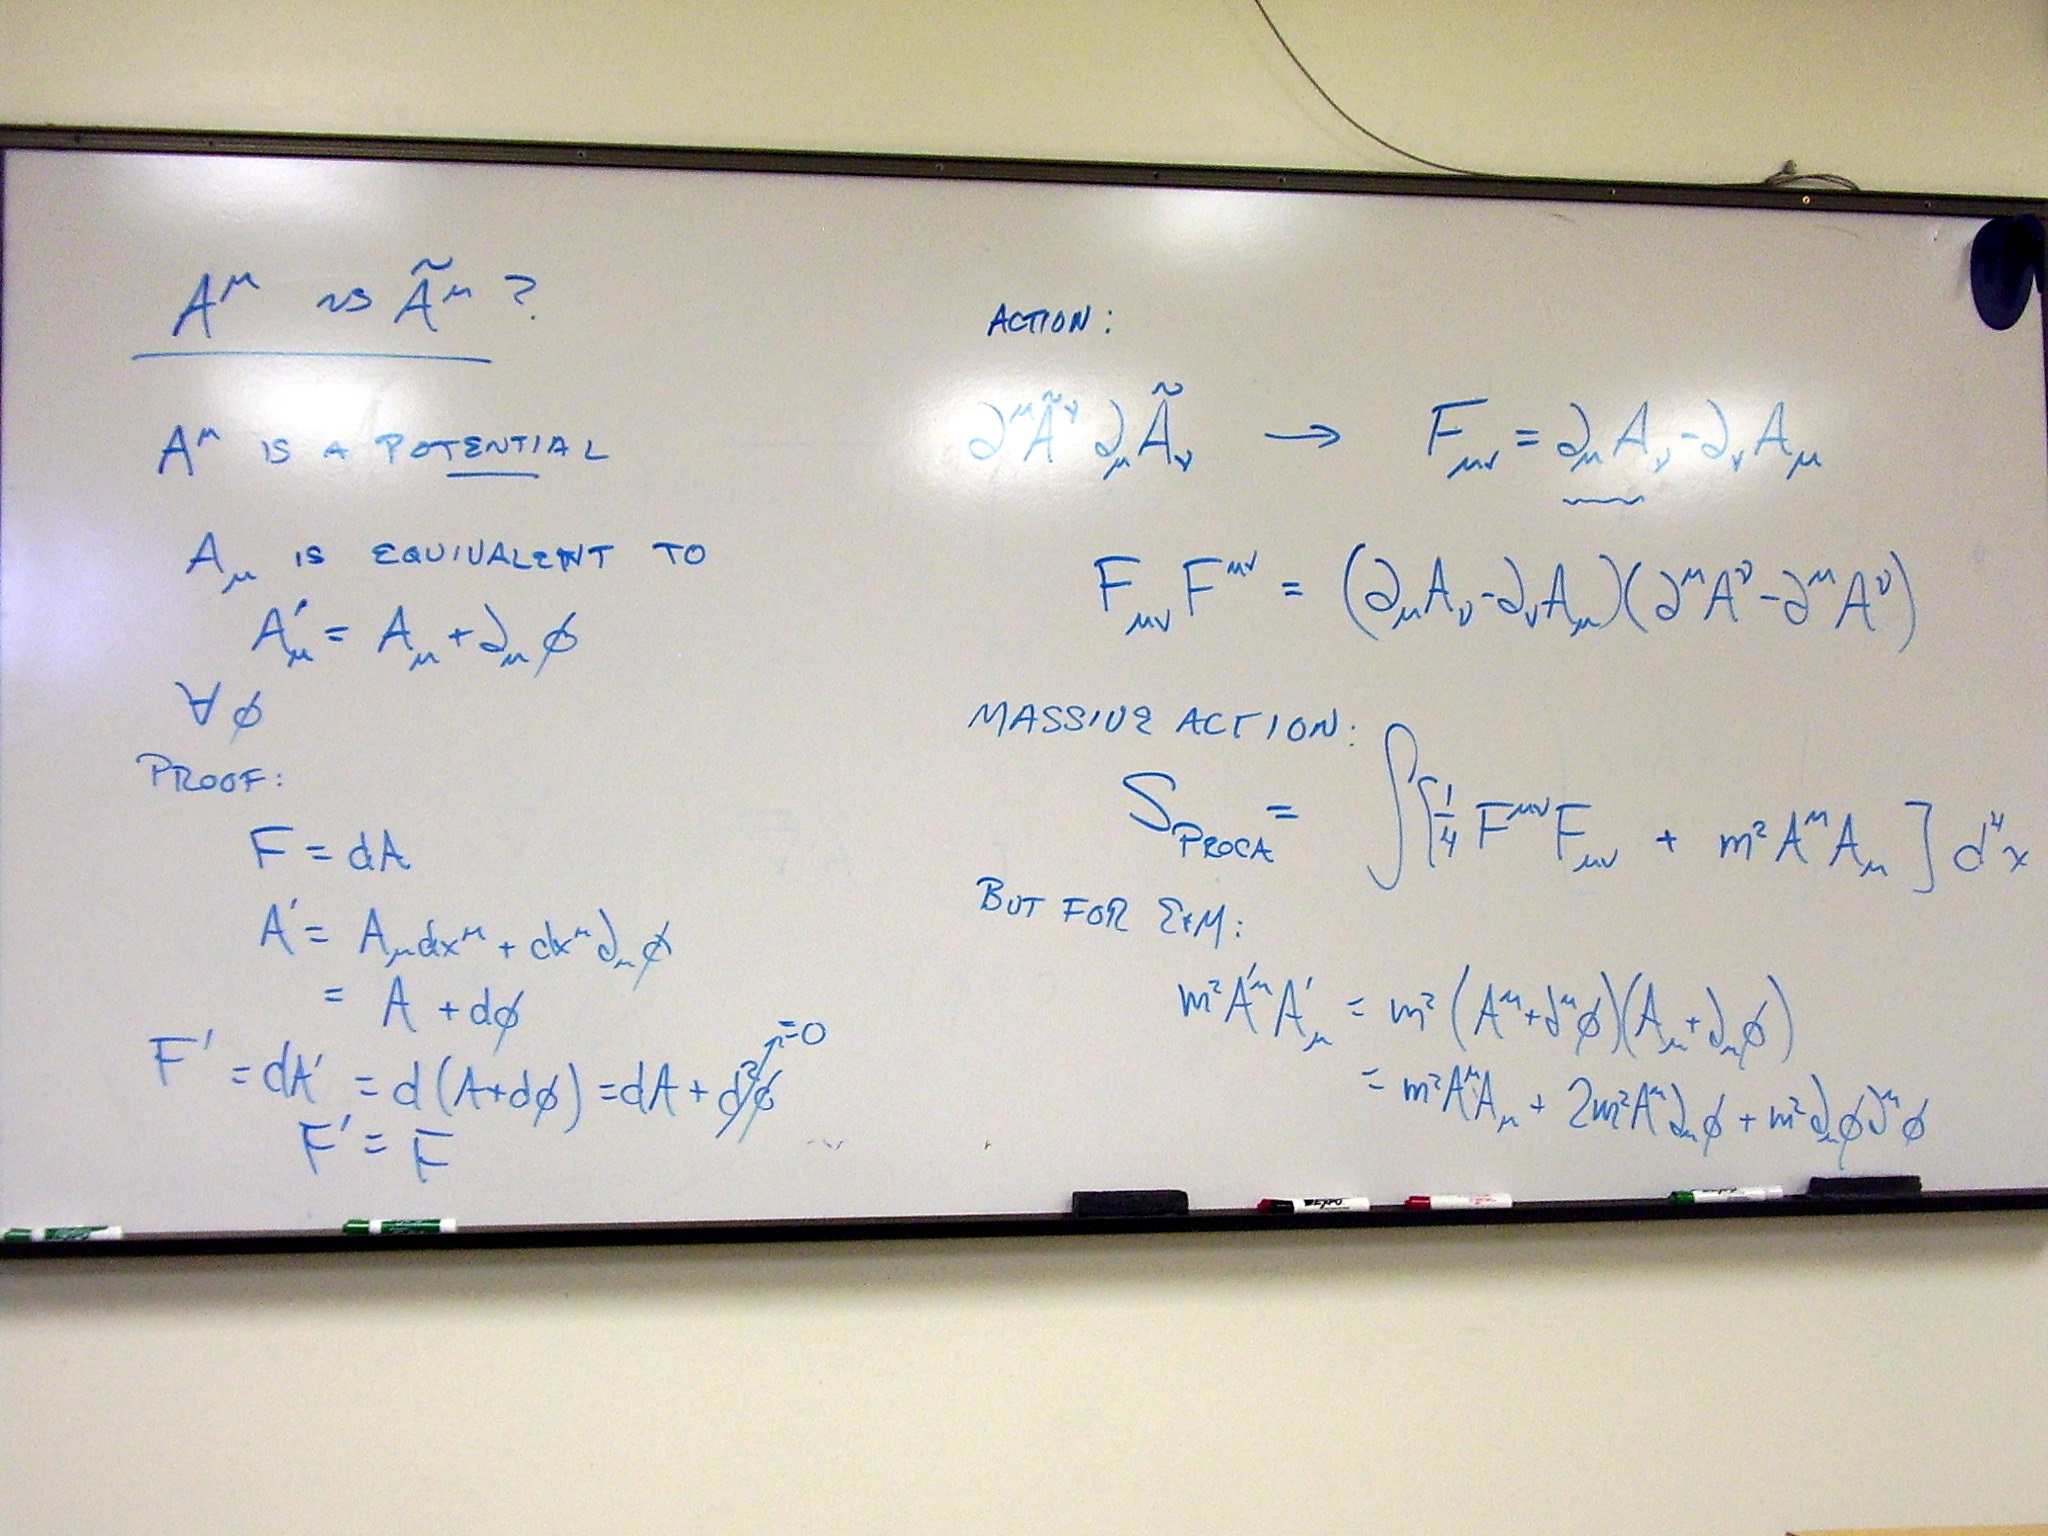 A^μ vs Ã^μ ?
A^μ IS A POTENTIAL
A_μ IS EQUIVALENT TO
A'_μ = A_μ + ∂_μ φ
∀ φ
PROOF:
F = dA
A' = A_μ dx^μ + dx^μ ∂_μ φ
= A + dφ
F' = dA' = d(A+dφ) = dA + d²φ =0
F' = F
ACTION:
∂^μ Ã^ν ∂_μ Ã_ν → F_μν = ∂_μ A_ν - ∂_ν A_μ
F_μν F^μν = (∂_μ A_ν - ∂_ν A_μ)(∂^μ A^ν - ∂^μ A^ν)
MASSIVE ACTION:
S_PROCA = ∫[¼ F^μν F_μν + m² A^μ A_μ] d⁴x
BUT FOR E+M:
m² A'^μ A'_μ = m² (A^μ + ∂^μ φ)(A_μ + ∂_μ φ)
= m² A^μ A_μ + 2m² A^μ ∂_μ φ + m² ∂_μ φ ∂^μ φ
EXPO